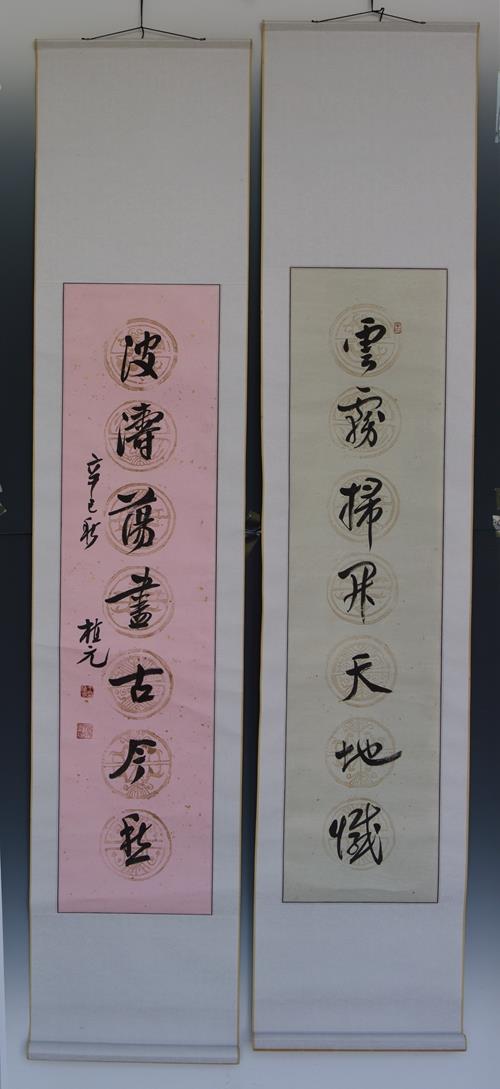 雲霧掃開天地懺
波濤蕩盡古今愁
辛巳秋 植元